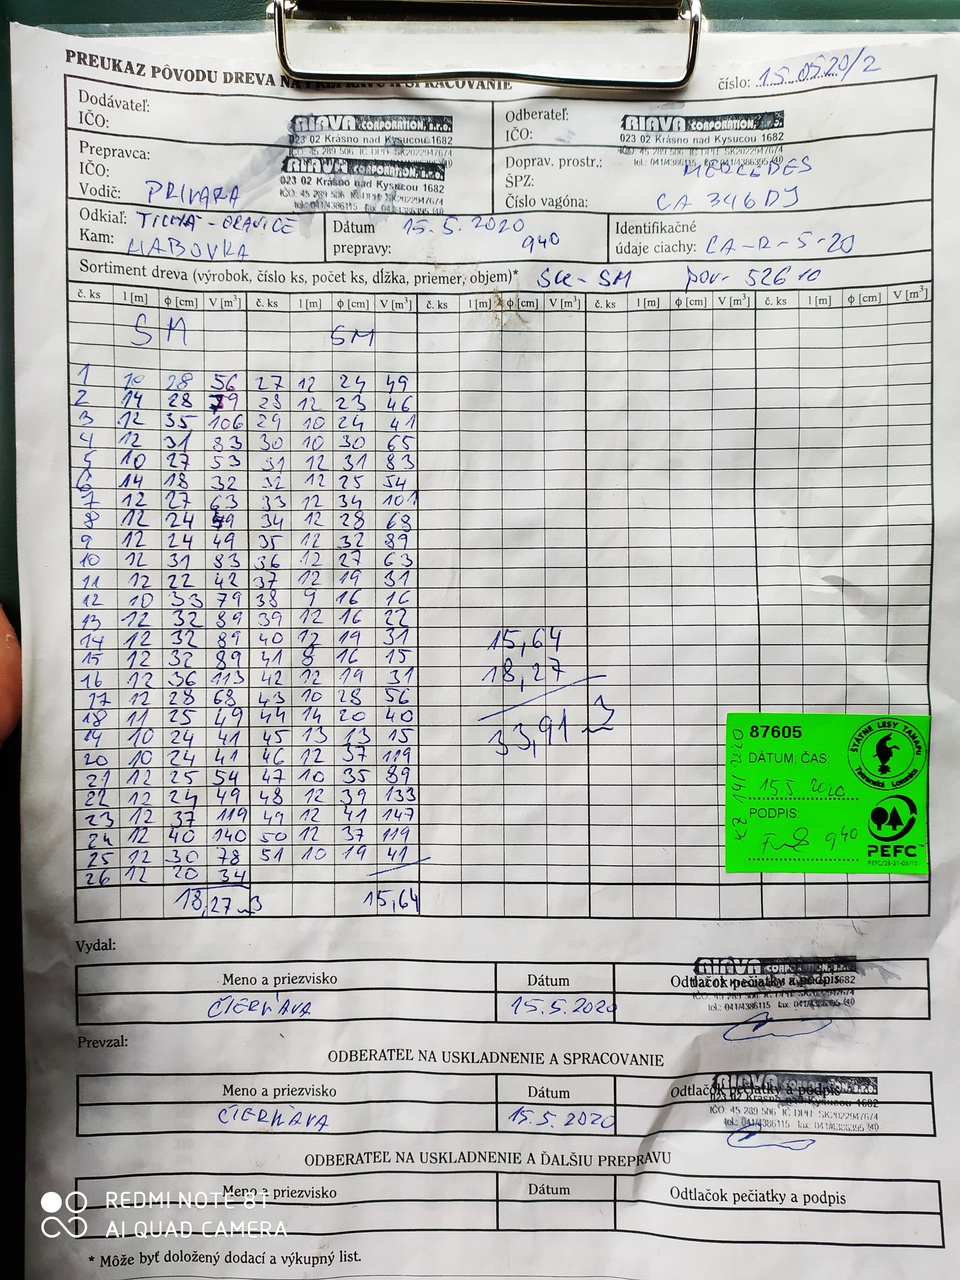 PREUKAZ PÔVODU DREVA NA PREPRAVU A SPRACOVANIE
číslo: 15.0520/2
Dodávateľ:
IČO:
RIAVA CORPORATION, s.r.o.
023 02 Krásno nad Kysucou 1682
IČO: 45 289 506 IČ DPH: SK2022947674
Odberateľ:
IČO:
RIAVA CORPORATION, s.r.o.
023 02 Krásno nad Kysucou 1682
45 289 506 IČ DPH: SK2022947674
tel.: 041/4386115 fax: 041/4386395 (40)
Prepravca:
IČO:
Vodič: PRIVARA
RIAVA CORPORATION, s.r.o.
023 02 Krásno nad Kysucou 1682
IČO: 45 289 506 IČ DPH: SK2022947674
tel.: 041/4386115 fax: 041/4386395 (40)
Doprav. prostr.: MERCEDES
ŠPZ:
Číslo vagóna: CA 346DJ
Odkiaľ: TICHÁ-ORAVICE
Kam: HABOVKA
Dátum 15.5.2020
prepravy: 940
Identifikačné
údaje ciachy: CA-R-5-20
Sortiment dreva (výrobok, číslo ks, počet ks, dĺžka, priemer, objem)* SK-SM por. 52610
č. ks l [m] ϕ [cm] V [m³] č. ks l [m] ϕ [cm] V [m³] č. ks l [m] ϕ [cm] V [m³] č. ks l [m] ϕ [cm] V [m³] č. ks l [m] ϕ [cm] V [m³]
SM SM
1 10 28 56 27 12 24 49
2 14 28 79 28 12 23 46
3 12 35 106 29 10 24 41
4 12 31 83 30 10 30 65
5 10 27 53 31 12 31 83
6 14 18 32 32 12 25 54
7 12 27 63 33 12 34 101
8 12 24 49 34 12 28 68
9 12 24 49 35 12 32 89
10 12 31 83 36 12 27 63
11 12 22 42 37 12 19 31
12 10 33 79 38 9 16 16
13 12 32 89 39 12 16 22
14 12 32 89 40 12 19 31
15 12 32 89 41 8 16 15
16 12 36 113 42 12 19 31
17 12 28 68 43 10 28 56
18 11 25 49 44 14 20 40
19 10 24 41 45 13 13 15
20 10 24 41 46 12 37 119
21 12 25 54 47 10 35 89
22 12 24 49 48 12 39 133
23 12 37 119 49 12 41 147
24 12 40 140 50 12 37 119
25 12 30 78 51 10 19 41
26 12 20 34
18,27 m3 15,64
15,64
18,27
33,91 m3
87605
DÁTUM, ČAS:
15.5 2020
PODPIS:
940
ŠTÁTNE LESY TANAPU
Tatranská Lomnica
PEFC
Vydal:
Meno a priezvisko Dátum Odtlačok pečiatky a podpis
ČIERŇAVA 15.5.2020
RIAVA CORPORATION, s.r.o.
tel.: 041/4386115 fax: 041/4386395 (40)
Prevzal:
ODBERATEĽ NA USKLADNENIE A SPRACOVANIE
Meno a priezvisko Dátum Odtlačok pečiatky a podpis
ČIERŇAVA 15.5.2020
RIAVA CORPORATION, s.r.o.
023 02 Krásno nad Kysucou 1682
IČO: 45 289 506 IČ DPH: SK2022947674
tel.: 041/4386115 fax: 041/4386395 (40)
ODBERATEĽ NA USKLADNENIE A ĎALŠIU PREPRAVU
Meno a priezvisko Dátum Odtlačok pečiatky a podpis
REDMI NOTE 8T
AI QUAD CAMERA
* Môže byť doložený dodací a výkupný list.